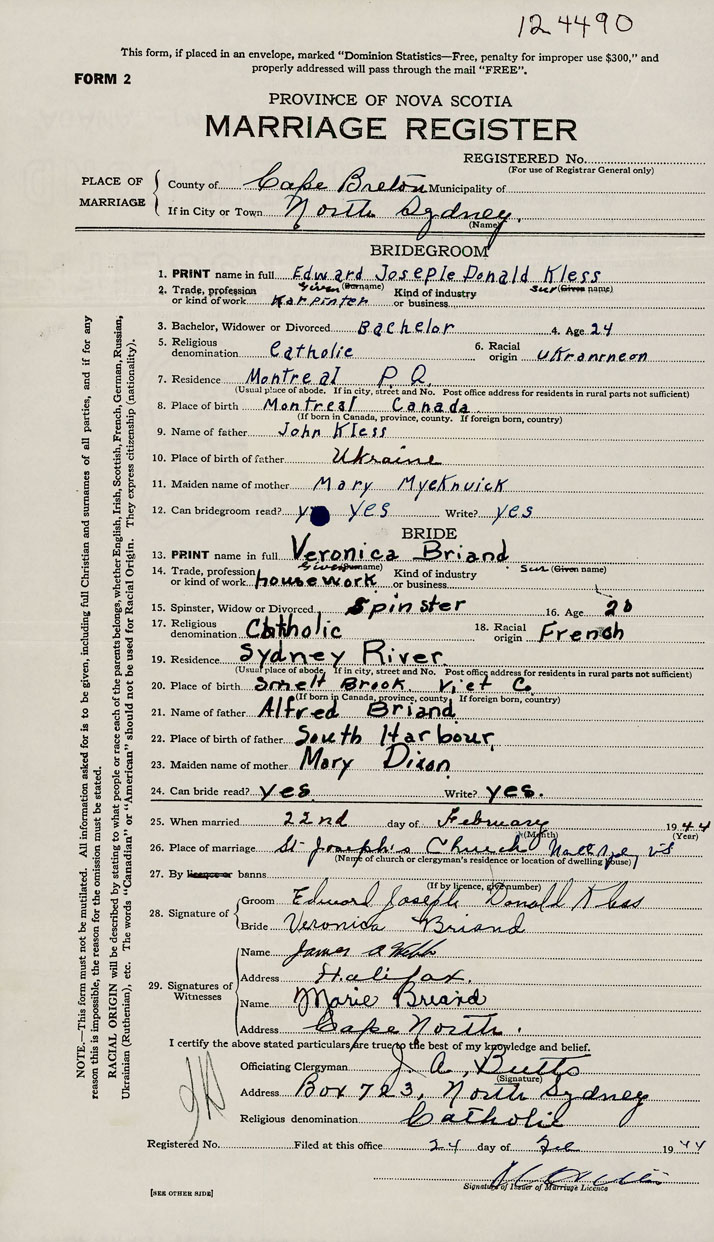 124490
This form, if placed in an envelope, marked "Dominion Statistics—Free, penalty for improper use $300," and
properly addressed will pass through the mail "FREE".
FORM 2
PROVINCE OF NOVA SCOTIA
MARRIAGE REGISTER
REGISTERED No.
(For use of Registrar General only)
PLACE OF MARRIAGE
County of Cape Breton Municipality of
If in City or Town North Sydney.
(Name)
BRIDEGROOM
1. PRINT name in full Edward Joseple Donald Kless
Given (Surname) Sur (Given name)
2. Trade, profession or kind of work Karpinter Kind of industry or business
3. Bachelor, Widower or Divorced Bachelor 4. Age 24
5. Religious denomination Catholic 6. Racial origin Ukranrneon
7. Residence Montreal P Q.
(Usual place of abode. If in city, street and No. Post office address for residents in rural parts not sufficient)
8. Place of birth Montreal Canada
(If born in Canada, province, county. If foreign born, country)
9. Name of father John Kless
10. Place of birth of father Ukraine
11. Maiden name of mother Mary Myeknuick
12. Can bridegroom read? yes Write? yes
BRIDE
13. PRINT name in full Veronica Briand
Given (Surname) Sur (Given name)
14. Trade, profession or kind of work housework Kind of industry or business
15. Spinster, Widow or Divorced Spinster 16. Age 20
17. Religious denomination Catholic 18. Racial origin French
19. Residence Sydney River
(Usual place of abode. If in city, street and No. Post office address for residents in rural parts not sufficient)
20. Place of birth Smelt Brook Vict Co.
(If born in Canada, province, county. If foreign born, country)
21. Name of father Alfred Briand
22. Place of birth of father South Harbour
23. Maiden name of mother Mary Dixon
24. Can bride read? yes Write? yes.
25. When married 22nd day of February 1944
(Month) (Year)
26. Place of marriage St Joseph's Church North Sydney NS
(Name of church or clergyman's residence or location of dwelling house)
27. By licence or banns
(If by licence, give number)
28. Signature of
Groom Edward Joseph Donald Kless
Bride Veronica Briand
29. Signatures of Witnesses
Name James A Webb
Address Halifax.
Name Marie Briand
Address Cape North.
I certify the above stated particulars are true to the best of my knowledge and belief.
Officiating Clergyman J. A. Butts
(Signature)
Address Box 723, North Sydney
Religious denomination Catholic
Registered No. Filed at this office 24 day of Feb 1944
Signature of Issuer of Marriage Licence
[SEE OTHER SIDE]
NOTE.—This form must not be mutilated. All information asked for is to be given, including full Christian and surnames of all parties, and if for any
reason this is impossible, the reason for the omission must be stated.
RACIAL ORIGIN will be described by stating to what people or race each of the parents belongs, whether English, Irish, Scottish, French, German, Russian,
Ukrainian (Ruthenian), etc. The words "Canadian" or "American" should not be used for Racial Origin. They express citizenship (nationality).